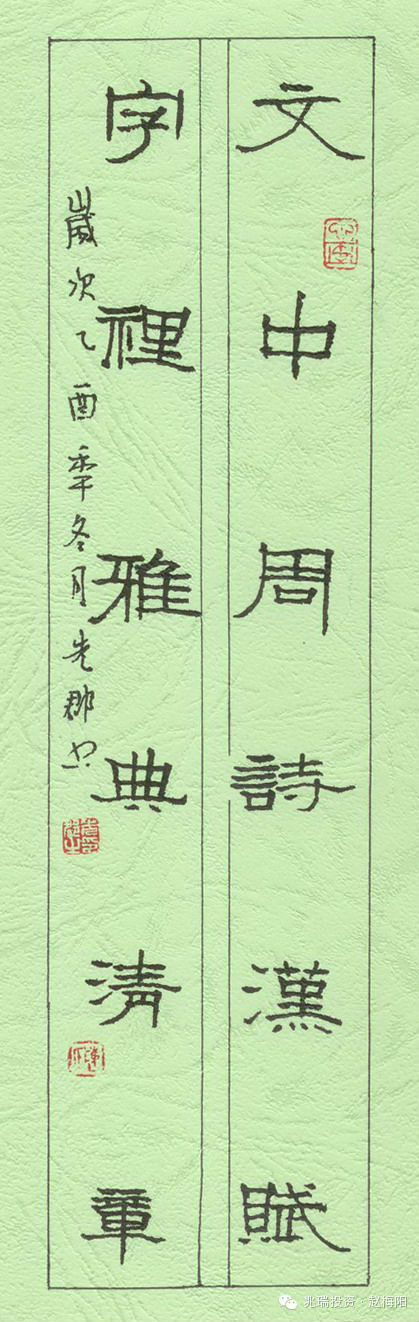 文中周詩漢賦
字裡雅典清章
歲次乙酉年冬月先郡书
兆瑞投资：赵梅阳